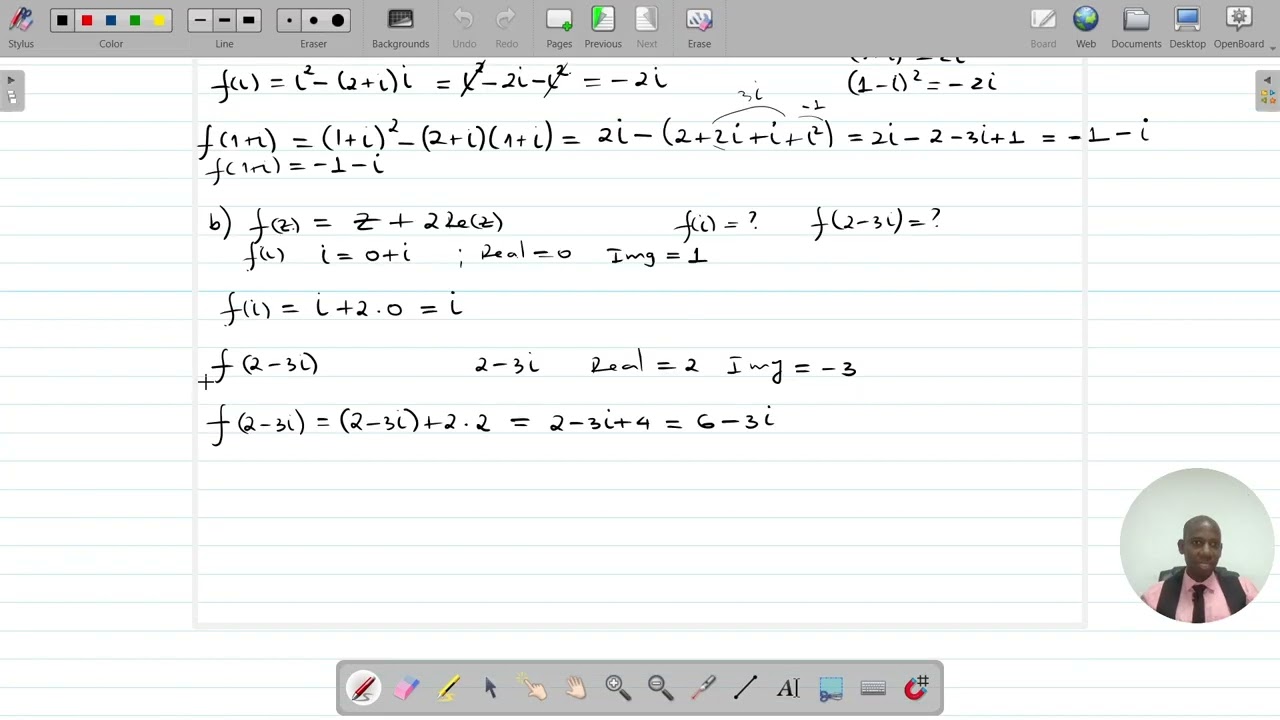 Stylus Color Line Eraser Backgrounds Undo Redo Pages Previous Next Erase Board Web Documents Desktop OpenBoard
f(i) = i² - (2+i)i = i² - 2i - i² = -2i
(1-i)² = -2i
3i
-1
f(1+i) = (1+i)² - (2+i)(1+i) = 2i - (2+2i+i+i²) = 2i - 2 - 3i + 1 = -1 - i
f(1+i) = -1 - i
b) f(z) = z + 2Re(z) f(i) = ? f(2-3i) = ?
f(i) i = 0+i ; Real = 0 Img = 1
f(i) = i + 2·0 = i
f(2-3i) 2-3i Real = 2 Img = -3
f(2-3i) = (2-3i) + 2·2 = 2-3i+4 = 6-3i